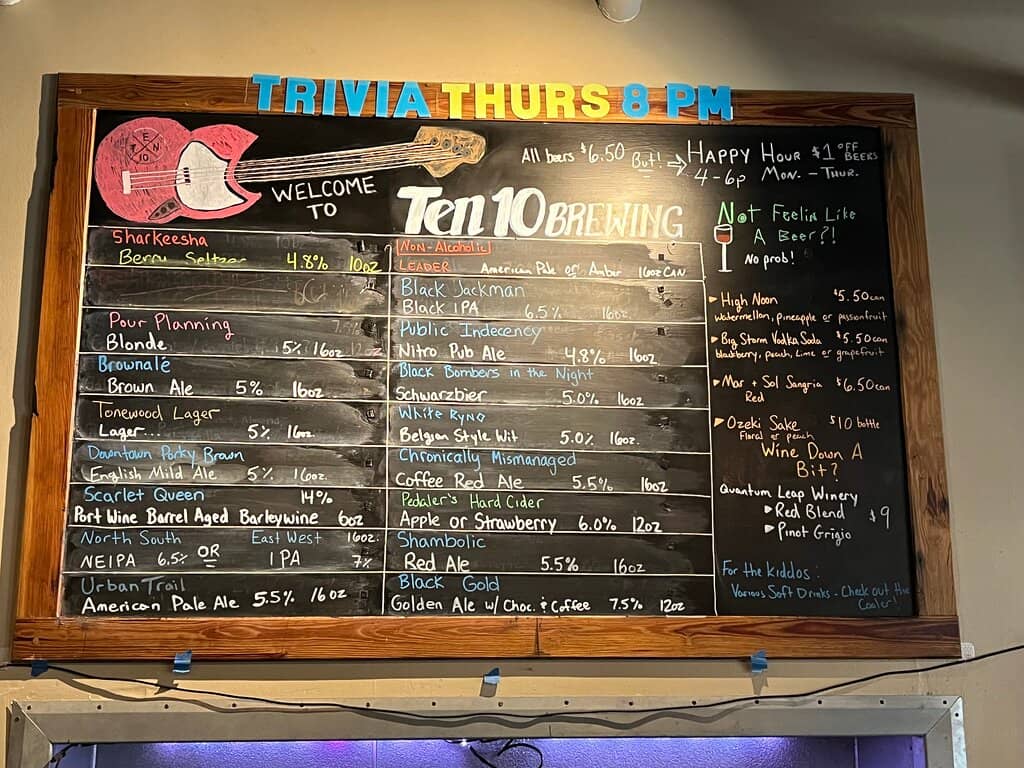 TRIVIA THURS 8 PM
TEN
10
WELCOME
TO
Ten 10 BREWING
All beers $6.50 But! → HAPPY HOUR $1 OFF BEERS
4-6p MON. - THUR.
Sharkeesha
Berry Seltzer 4.8% 10oz
Pour Planning
Blonde 5% 16oz
Brownalé
Brown Ale 5% 16oz
Tonewood Lager
Lager... 5% 16oz.
Downtown Porky Brown
English Mild Ale 5% 16oz.
Scarlet Queen 14%
Port Wine Barrel Aged Barleywine 6oz
North South East West 16oz.
NEIPA 6.5% OR IPA 7%
Urban Trail
American Pale Ale 5.5% 16oz
Non-Alcoholic!
LEADER American Pale or Amber 16oz CAN
Black Jackman
Black IPA 6.5% 16oz.
Public Indecency
Nitro Pub Ale 4.8% 16oz
Black Bombers in the Night
Schwarzbier 5.0% 16oz
White Ryno
Belgian Style Wit 5.0% 16oz.
Chronically Mismanaged
Coffee Red Ale 5.5% 16oz
Pedaler's Hard Cider
Apple or Strawberry 6.0% 12oz
Shambolic
Red Ale 5.5% 16oz
Black Gold
Golden Ale w/ Choc. & Coffee 7.5% 12oz
Not Feelin Like
A Beer?!
No prob!
▸ High Noon $5.50 can
watermellon, pineapple or passionfruit
▸ Big Storm Vodka Soda $5.50 can
blackberry, peach, lime or grapefruit
▸ Mar + Sol Sangria $6.50 can
Red
▸ Ozeki Sake $10 bottle
Floral or peach
Wine Down A
Bit?
Quantum Leap Winery
▸ Red Blend $9
▸ Pinot Grigio
For the kiddos:
Various Soft Drinks - Check out the
Cooler!